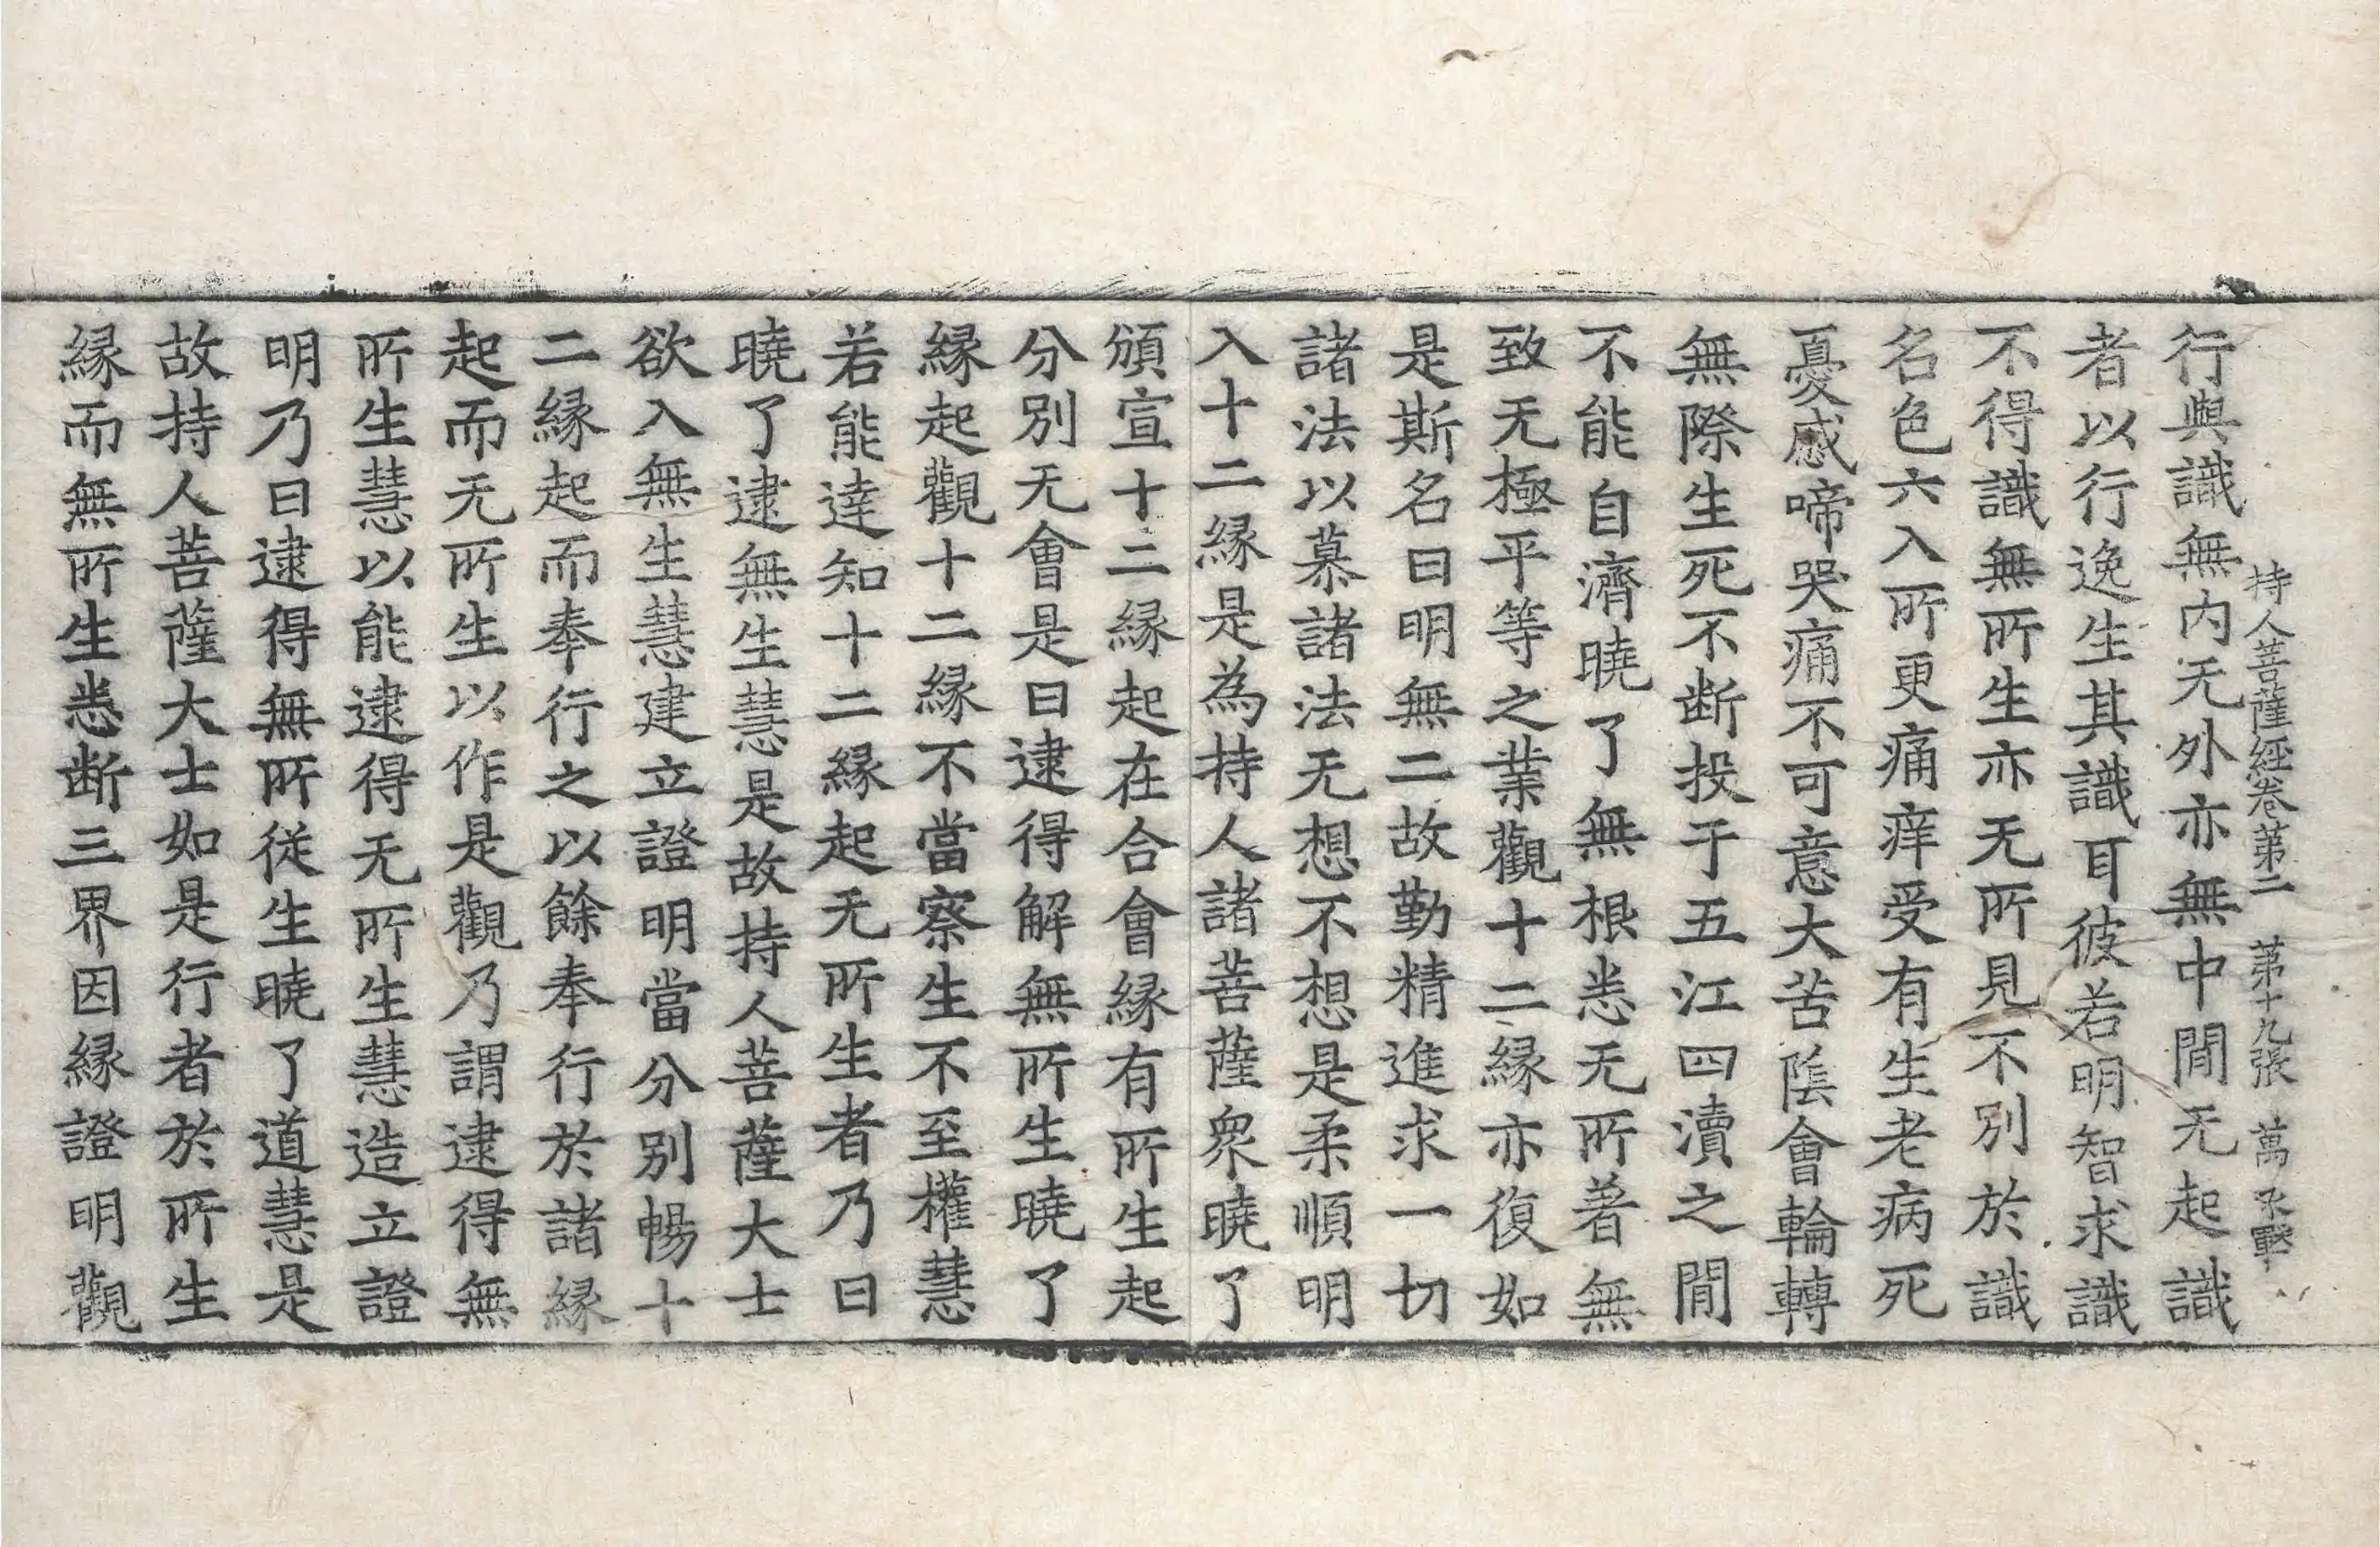 持人菩薩經卷第二　第十九張　萬
行與識無內无外亦無中間无起識
者以行逸生其識耳彼若明智求識
不得識無所生亦无所見不別於識
名色六入所更痛痒受有生老病死
憂慼啼哭痛不可意大苦陰會輪轉
無際生死不断投于五江四瀆之間
不能自濟曉了無根悉无所著無
致无極平等之業觀十二縁亦復如
是斯名曰明無二故勤精進求一切
諸法以慕諸法无想不想是柔順明
入十二縁是為持人諸菩薩衆曉了
頒宣十二縁起在合會縁有所生起
分別无會是曰逮得解無所生曉了
縁起觀十二縁不當察生不至權慧
若能達知十二縁起无所生者乃曰
曉了逮無生慧是故持人菩薩大士
欲入無生慧建立證明當分別暢十
二縁起而奉行之以餘奉行於諸縁
起而无所生以作是觀乃謂逮得無
所生慧以能逮得无所生慧造立證
明乃曰逮得無所從生曉了道慧是
故持人菩薩大士如是行者於所生
縁而無所生悉断三界因縁證明觀